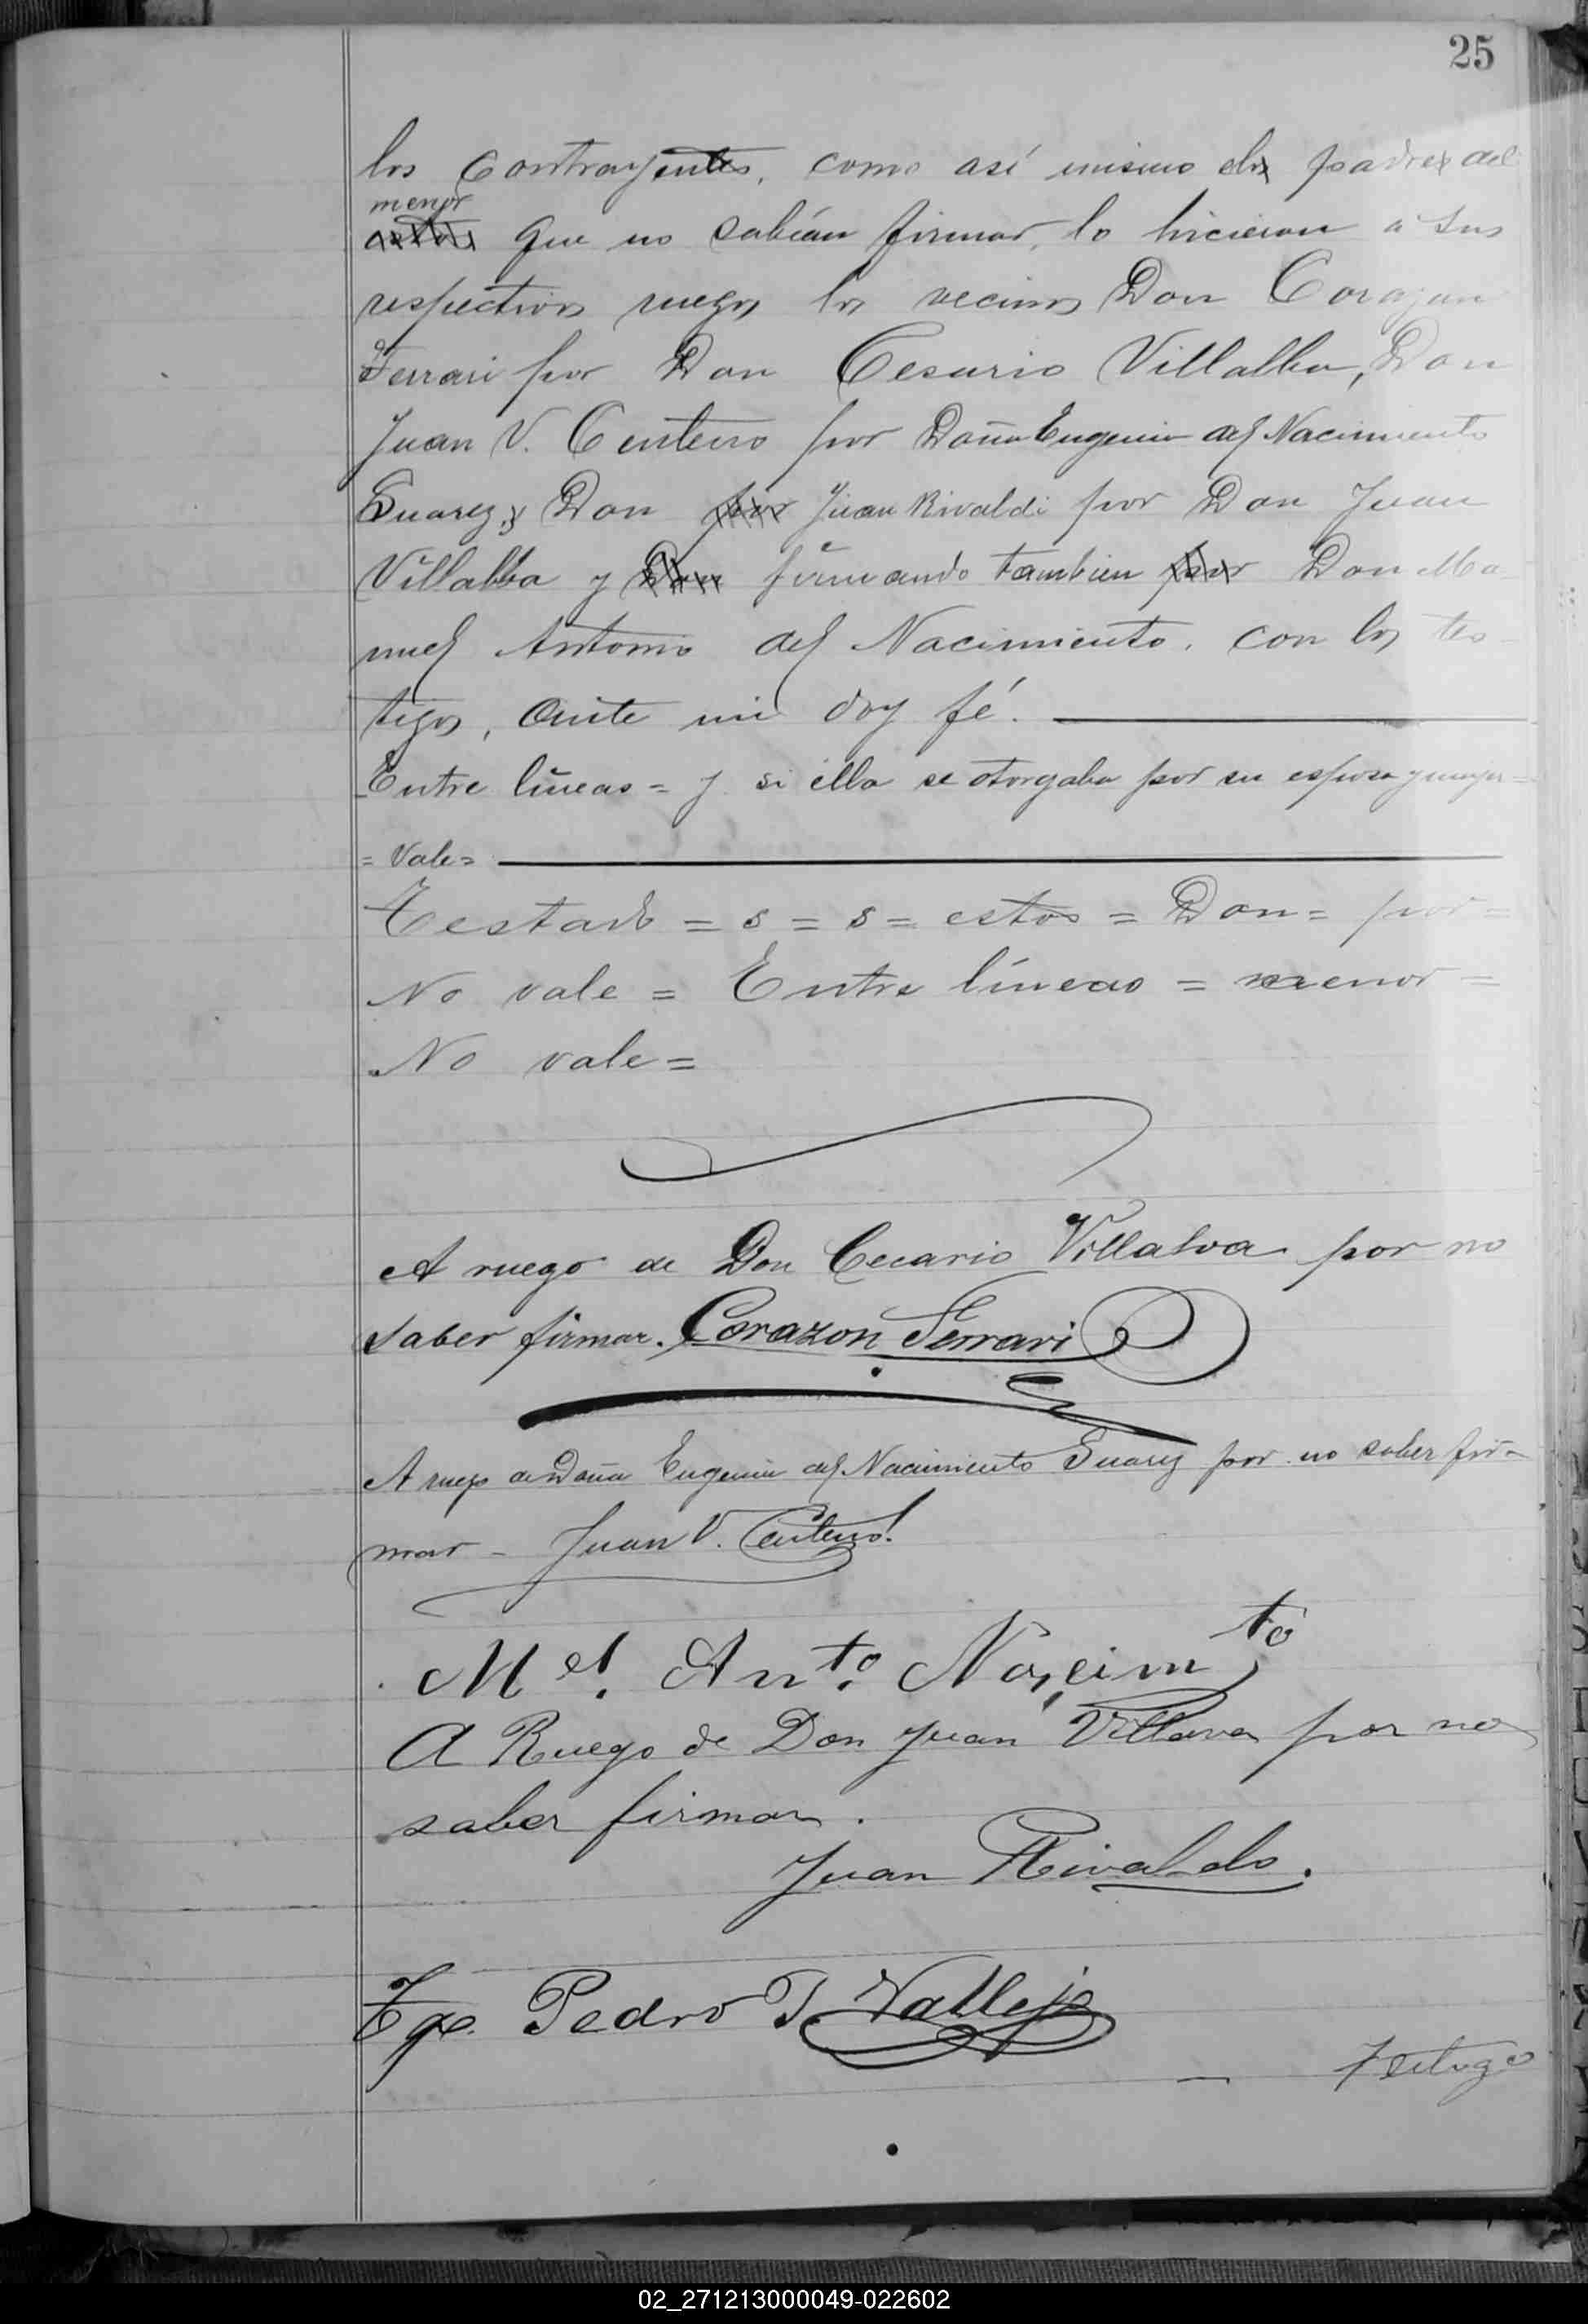 25
los Contrayentes, como así mismo el padre del
menor
estos que no sabían firmar, lo hicieron a sus
respectivos ruegos los vecinos Don Corazon
Ferrari por Don Cesario Villalba, Don
Juan V. Centeno por Doña Eugenia del Nacimiento
Suarez, y Don por Juan Rivaldi por Don Juan
Villalba y Don firmando tambien por Don Ma-
nuel Antonio del Nacimiento, con los tes-
tigos, Ante mi doy fé.
Entre líneas = y si ella se otorgaba por su esposa y mujer =
= Vale =
Testado = s = s = estos = Don = por =
No vale = Entre líneas = menor =
No vale =
A ruego de Don Cecario Villalva por no
saber firmar. Corazon Ferrari
A ruego de Doña Eugenia del Nacimiento Suarez por no saber fir-
mar - Juan V. Centeno
Mel. Anto. Nacimto
A Ruego de Don Juan Villava por no
saber firmar.
Juan Rivaldo.
Tgo. Pedro T. Vallejo
Testigo
02_271213000049-022602